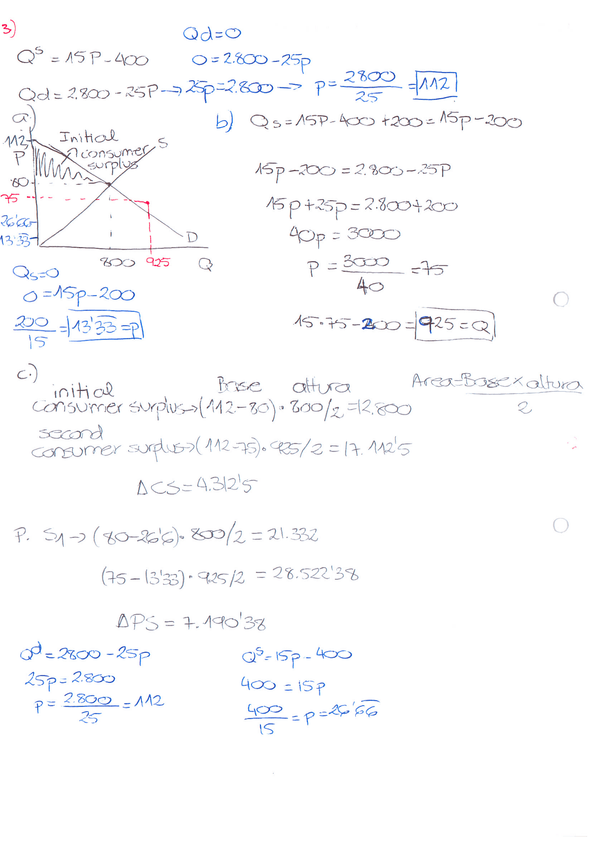 3)
Qd=0
Q^S = 15P-400
0=2.800-25p
Qd=2.800-25P → 25p=2.800 → p= 2800/25 = 112
a)
112
P
Initial
consumer
surplus
S
80
75
26'66
13'33
D
800
925
Q
b) Qs=15P-400+200=15p-200
15p-200=2.800-25P
15p+25p=2.800+200
40p=3000
P = 3000/40 = 75
15·75-200=925=Q
Qs=0
0=15p-200
200/15 = 13'33=P
c.)
initial Base altura Area=Base×altura/2
consumer surplus→(112-80)·800/2=12.800
second
consumer surplus→(112-75)·925/2=17.112'5
ΔCS=4.312'5
P. S1→(80-26'6)·800/2=21.332
(75-13'33)·925/2=28.522'38
ΔPS=7.190'38
Q^d=2800-25p
25p=2.800
p= 2.800/25 = 112
Q^s=15p-400
400=15p
400/15 = p=26'66